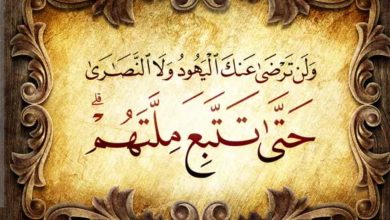 وَلَن تَرْضَىٰ عَنكَ ٱلْيَهُودُ وَلَا ٱلنَّصَٰرَىٰ
حَتَّىٰ تَتَّبِعَ مِلَّتَهُمْ ۗ